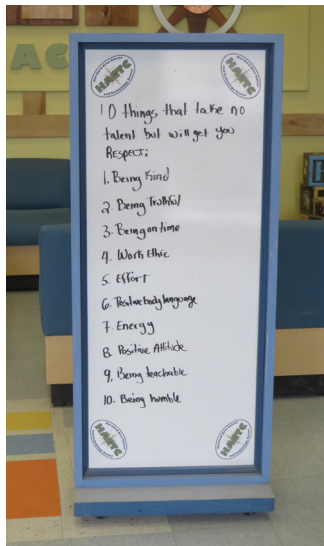 AC
HARTC
HARTC
10 things that take no
talent but will get you
RESPECT;
1. Being Kind
2. Being Truthful
3. Being on time
4. Work Ethic
5. Effort
6. Positive body language
7. Energy
8. Positive Attitude
9. Being teachable
10. Being humble
HARTC
HARTC